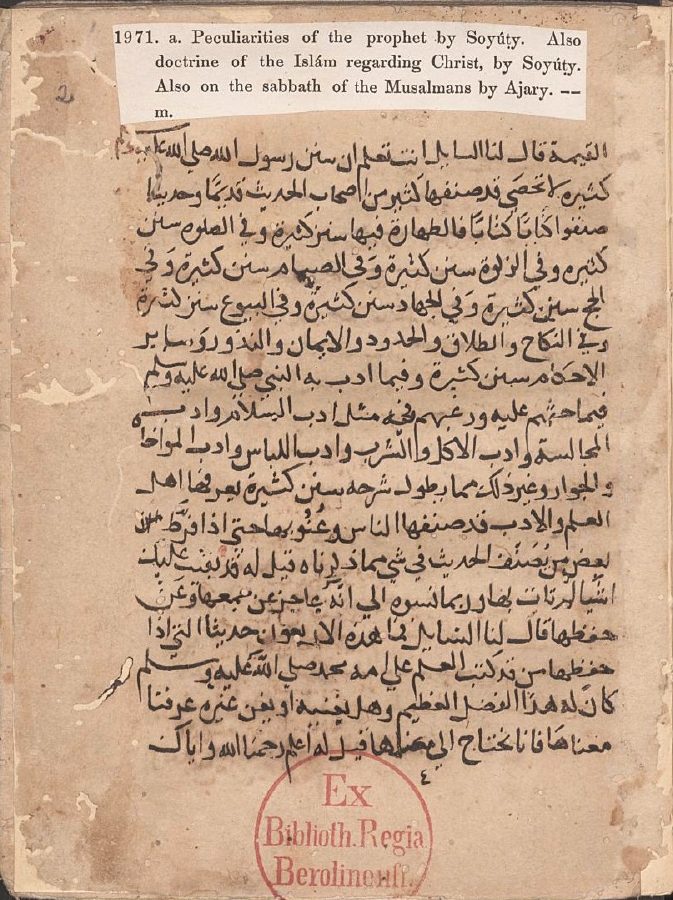 1971. a. Peculiarities of the prophet by Soyúṭy. Also
doctrine of the Islám regarding Christ, by Soyúṭy.
Also on the sabbath of the Musalmans by Ajary. —
m.
2
القيمة قال لنا السايل انت تعلم ان سنن رسول الله صلى الله عليه وسلم
كثيره لا تحصى قد صنفها كثير من اصحاب الحديث قديمًا وحديثا
صنفوا كتابًا كتابًا فالطهارة فيها سنن كثيرة وفي الصلوه سنن
كثيره وفي الزكوة سنن كثيرة وفي الصيام سنن كثيرة وفي
الحج سنن كثيرة وفي الجهاد سنن كثيرة وفي البيوع سنن كثيرة
وفي النكاح والطلاق والحدود والايمان والنذور وساير
الاحكام سنن كثيرة وفيما ادب به النبي صلى الله عليه وسلم
فيما حثهم عليه ورغبهم فيه مثل ادب السلام وادب
المجالسة وادب الاكل والشرب وادب اللباس وادب
والجوار وغير ذلك مما يطول شرحه سنن كثيرة يعرفها اهل
العلم والادب قد صنفها الناس وعُنُو بها حتى اذا
بعض من يُصنف الحديث في شي مما ذكرناه قيل له قد بقيت عليك
اشيا لم تات بها وربما نسبوه الى انه عاجز عن جمعها وعن
حفظها قال لنا السايل فما هذه الاربعون حديثا التي اذا
حفظها من قد كتب العلم على امة محمد صلى الله عليه وسلم
كان له هذا الفضل العظيم وهل يغنيه او يغن غيره عرفنا
معناها فانا نحتاج الى قيل له اعلم رحمنا الله واياك
٤
Ex
Biblioth. Regia
Berolinensi.